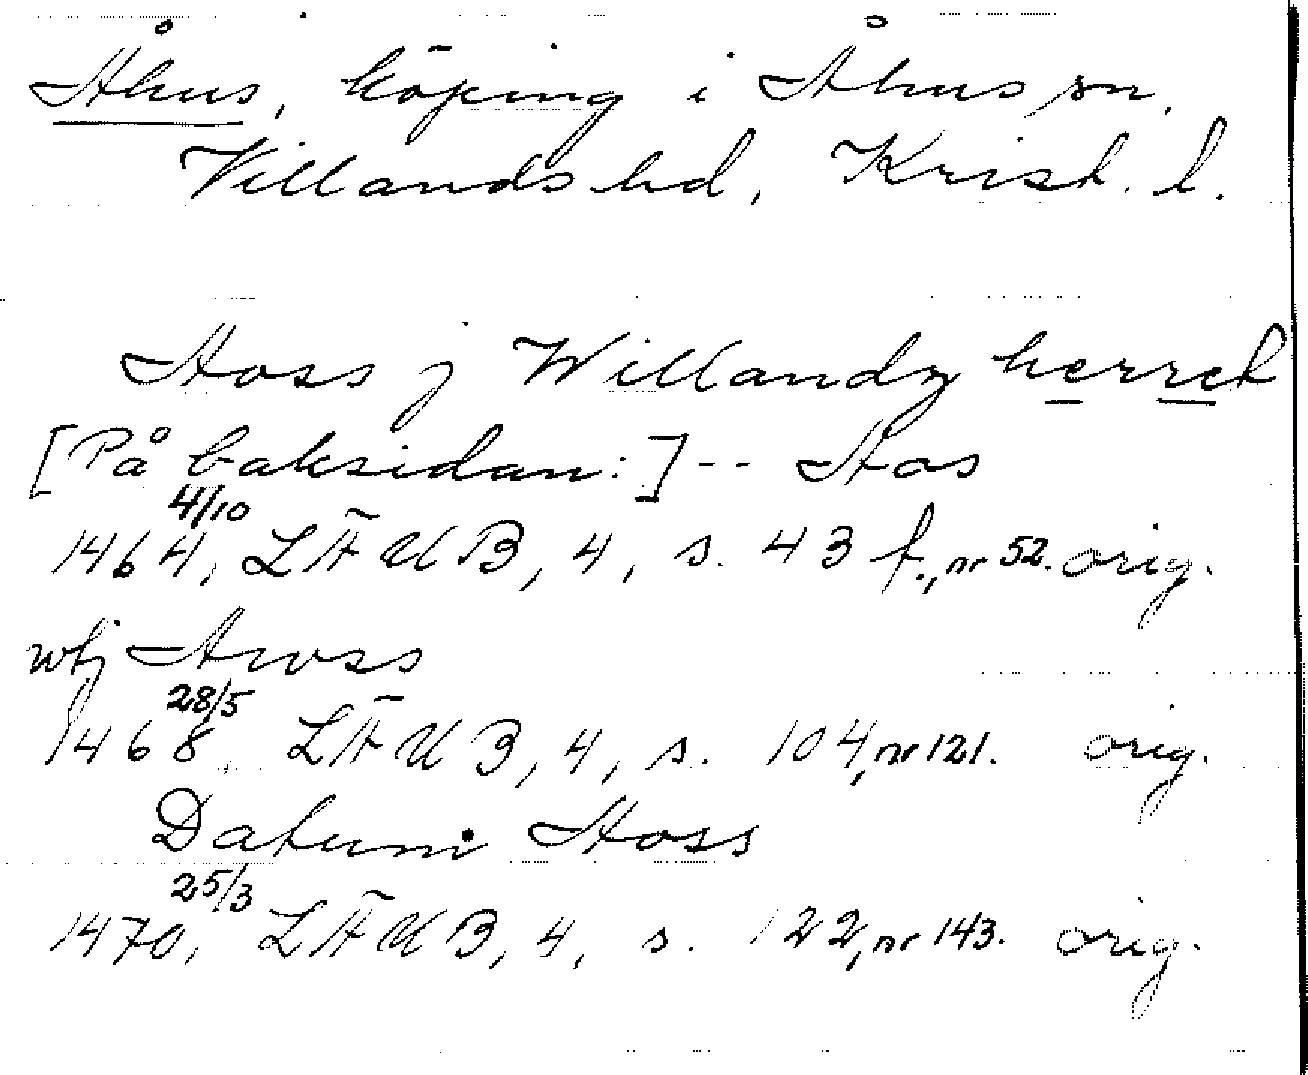 Åhus, köping i Åhus sn,
Villands hd, Krist. l.
Aoss j Willandz herret
[På baksidan:]-- Aos
4/10
1464, LÄUB, 4, s. 43 f., nr 52. orig.
wtj Awss
28/5
1468, LÄUB, 4, s. 104, nr 121. orig.
Datum Aoss
25/3
1470, LÄUB, 4, s. 122, nr 143. orig.